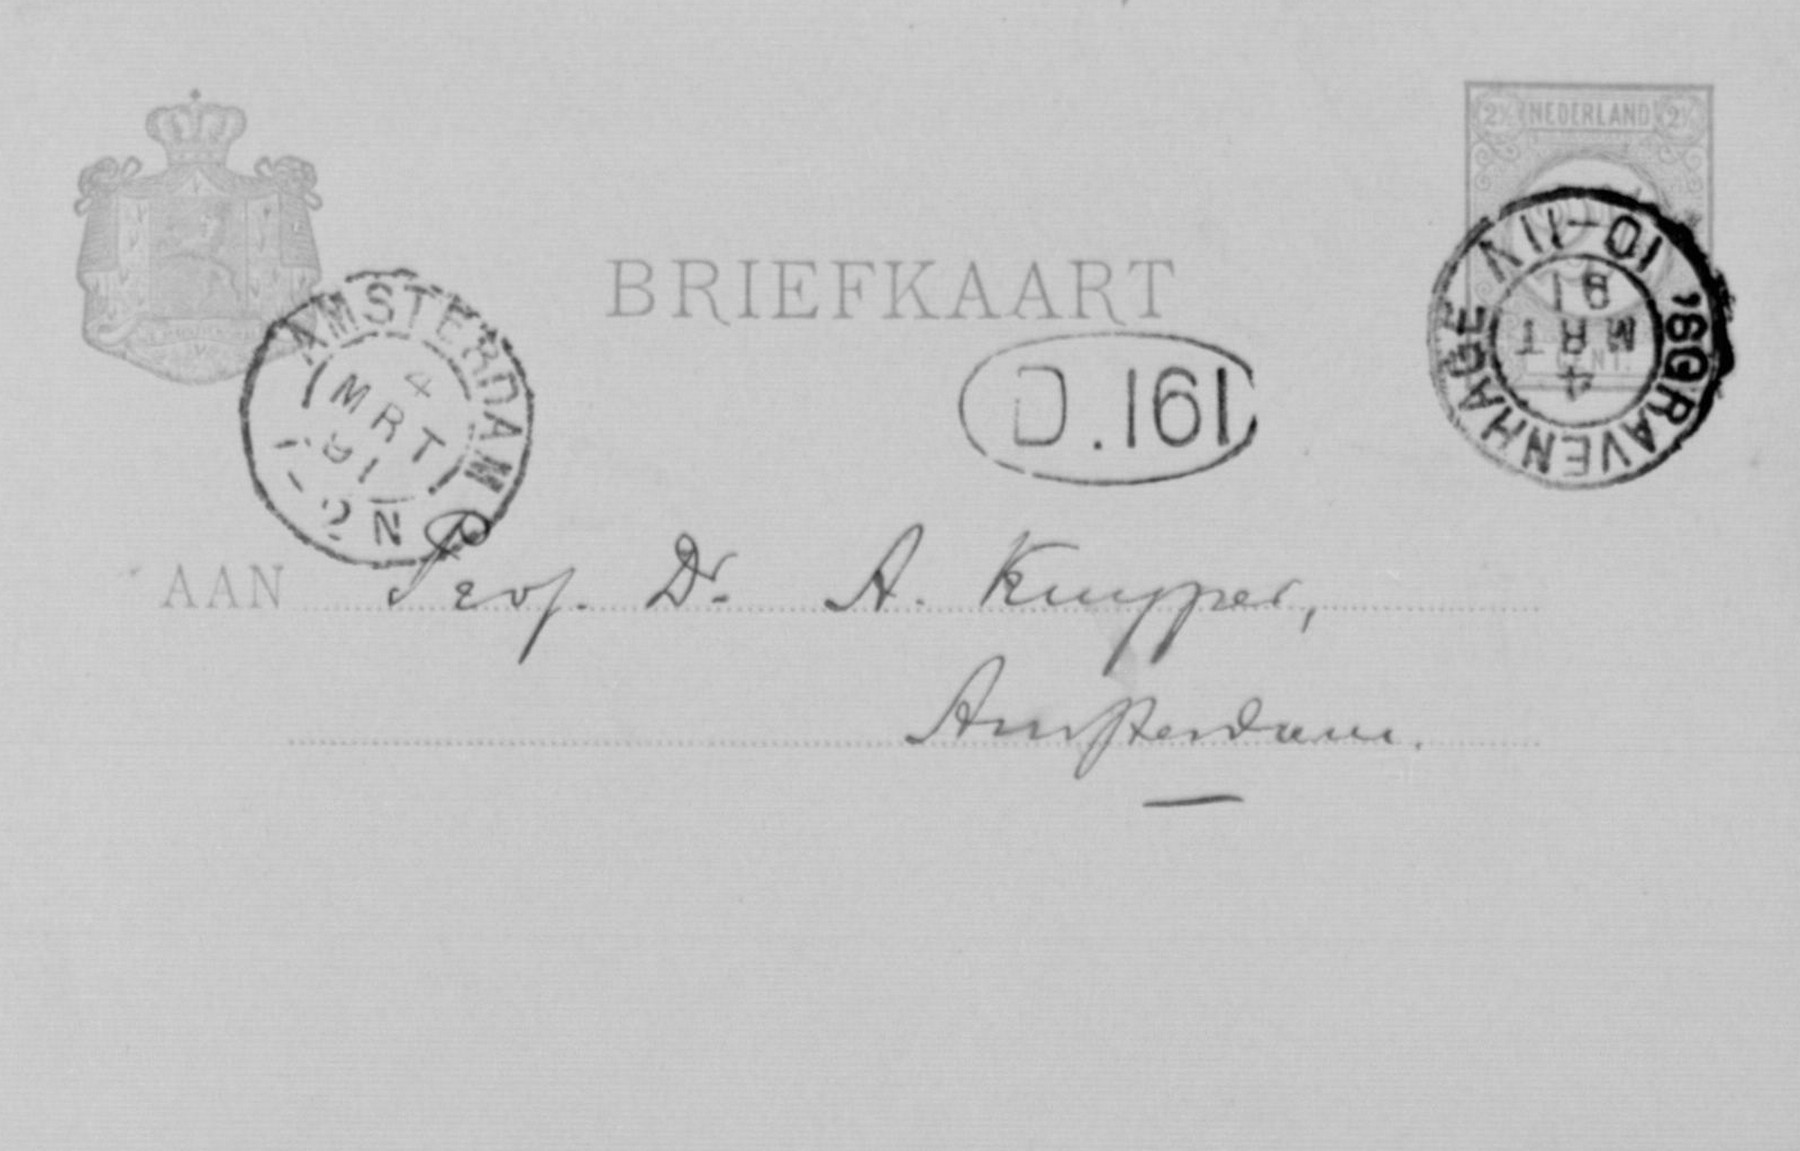 2½ NEDERLAND 2½
BRIEFKAART
'SGRAVENHAGE
10-11V
4
MRT
91
AMSTERDAM
4
MRT
91
1-2N
D.161
AAN Prof. Dr. A. Kuyper,
Amsterdam.